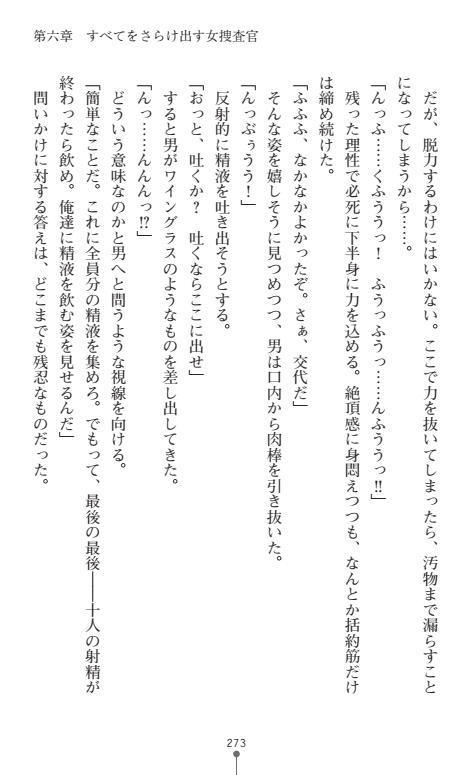 第六章　すべてをさらけ出す女捜査官
だが、脱力するわけにはいかない。ここで力を抜いてしまったら、汚物まで漏らすこと
になってしまうから……。
「んっふ……くふううっ！　ふうっふうっ……んふううっ‼」
残った理性で必死に下半身に力を込める。絶頂感に身悶えつつも、なんとか括約筋だけ
は締め続けた。
「ふふふ、なかなかよかったぞ。さぁ、交代だ」
そんな姿を嬉しそうに見つめつつ、男は口内から肉棒を引き抜いた。
「んっぷぅうう！」
反射的に精液を吐き出そうとする。
「おっと、吐くか？　吐くならここに出せ」
すると男がワイングラスのようなものを差し出してきた。
「んっ……んんんっ⁉」
どういう意味なのかと男へと問うような視線を向ける。
「簡単なことだ。これに全員分の精液を集めろ。でもって、最後の最後――十人の射精が
終わったら飲め。俺達に精液を飲む姿を見せるんだ」
問いかけに対する答えは、どこまでも残忍なものだった。
273